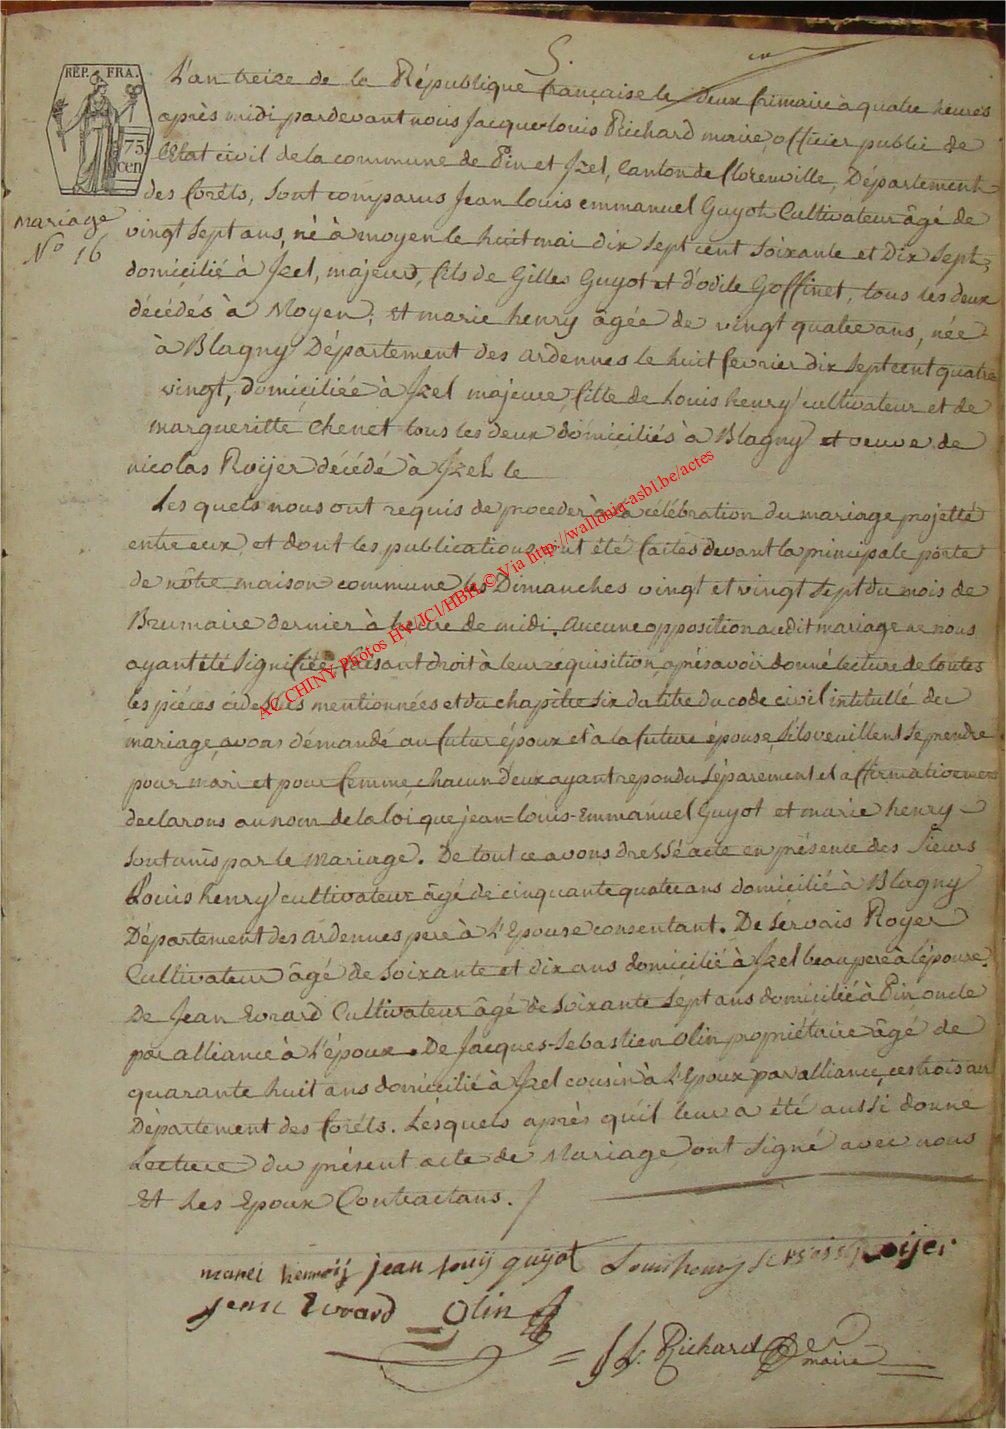 RÉP. FRA.
75
cen
5.
L'an treize de la République française le deux frimaire à quatre heures
après midi pardevant nous Jacque-louis Richard maire, officier public de
l'Etat civil de la commune de Pin et Jzel, Canton de florenville, Département
des forêts, sont comparus Jean louis emmanuel Guyot Cultivateur âgé de
mariage
N° 16
vingt sept ans, né à moyen le huit mai dix sept cent soixante et Dix sept,
domicilié à Jzel, majeur, fils de Gilles Guyot et d'odile Goffinet, tous les deux
décédés à Moyen; et marie henry âgée de vingt quatre ans, née
à Blagny Département des ardennes le huit fevrier dix sept cent quatre
vingt, domiciliée à Jzel majeure, fille de Louis henry cultivateur et de
margueritte Chenet tous les deux domiciliés à Blagny et veuve de
nicolas Roijer décédé à Jzel le
Lesquels nous ont requis de proceder à la célébration du mariage projetté
entre eux, et dont les publications ont été faites devant la principale porte
de nôtre maison commune les Dimanches vingt et vingt sept du mois de
Brumaire dernier à heure de midi. Aucune opposition audit mariage ne nous
ayant été signifiée, faisant droit à leur réquisition, après avoir donné lecture de toutes
les piéces cidessus mentionnées et du chapitre six du titre du code civil intitullé du
mariage, avons démandé au futur époux et à la future épouse, s'ils veuillent se prendre
pour mari et pour femme, chacun d'eux ayant repondu séparement et affirmativement
declarons au nom de la loi que jean-louis-Emmanuel Guyot et marie henry
sont unis par le Mariage. De tout ce avons dressé acte en présence des Sieurs
Louis henry cultivateur âgé de cinquante quatre ans domicilié à Blagny
Département des ardennes pere à l'Epouse consentant. De Servais Royer
Cultivateur âgé de soixante et dix ans domicilié à Jzel beau pere à l'épouse.
De Jean Evrard Cultivateur âgé de soixante sept ans domicilié à Pin oncle
par alliance à l'époux. De Jacques-Sebastien Olin propriétaire âgé de
quarante huit ans domicilié à Jzel cousin à l'Epoux par alliance, ces trois au
Département des forêts. Lesquels après qu'il leur a été aussi donné
Lecture du présent acte de Mariage ont signé avec nous
Et Les Epoux Contractans.
AC CHINY Photos HV/JCl/HBH © Via http://wallonia-asbl.be/actes
jean louij guyot Louis henry servais roijer
jean Evrard Olin
J L. Richard maire